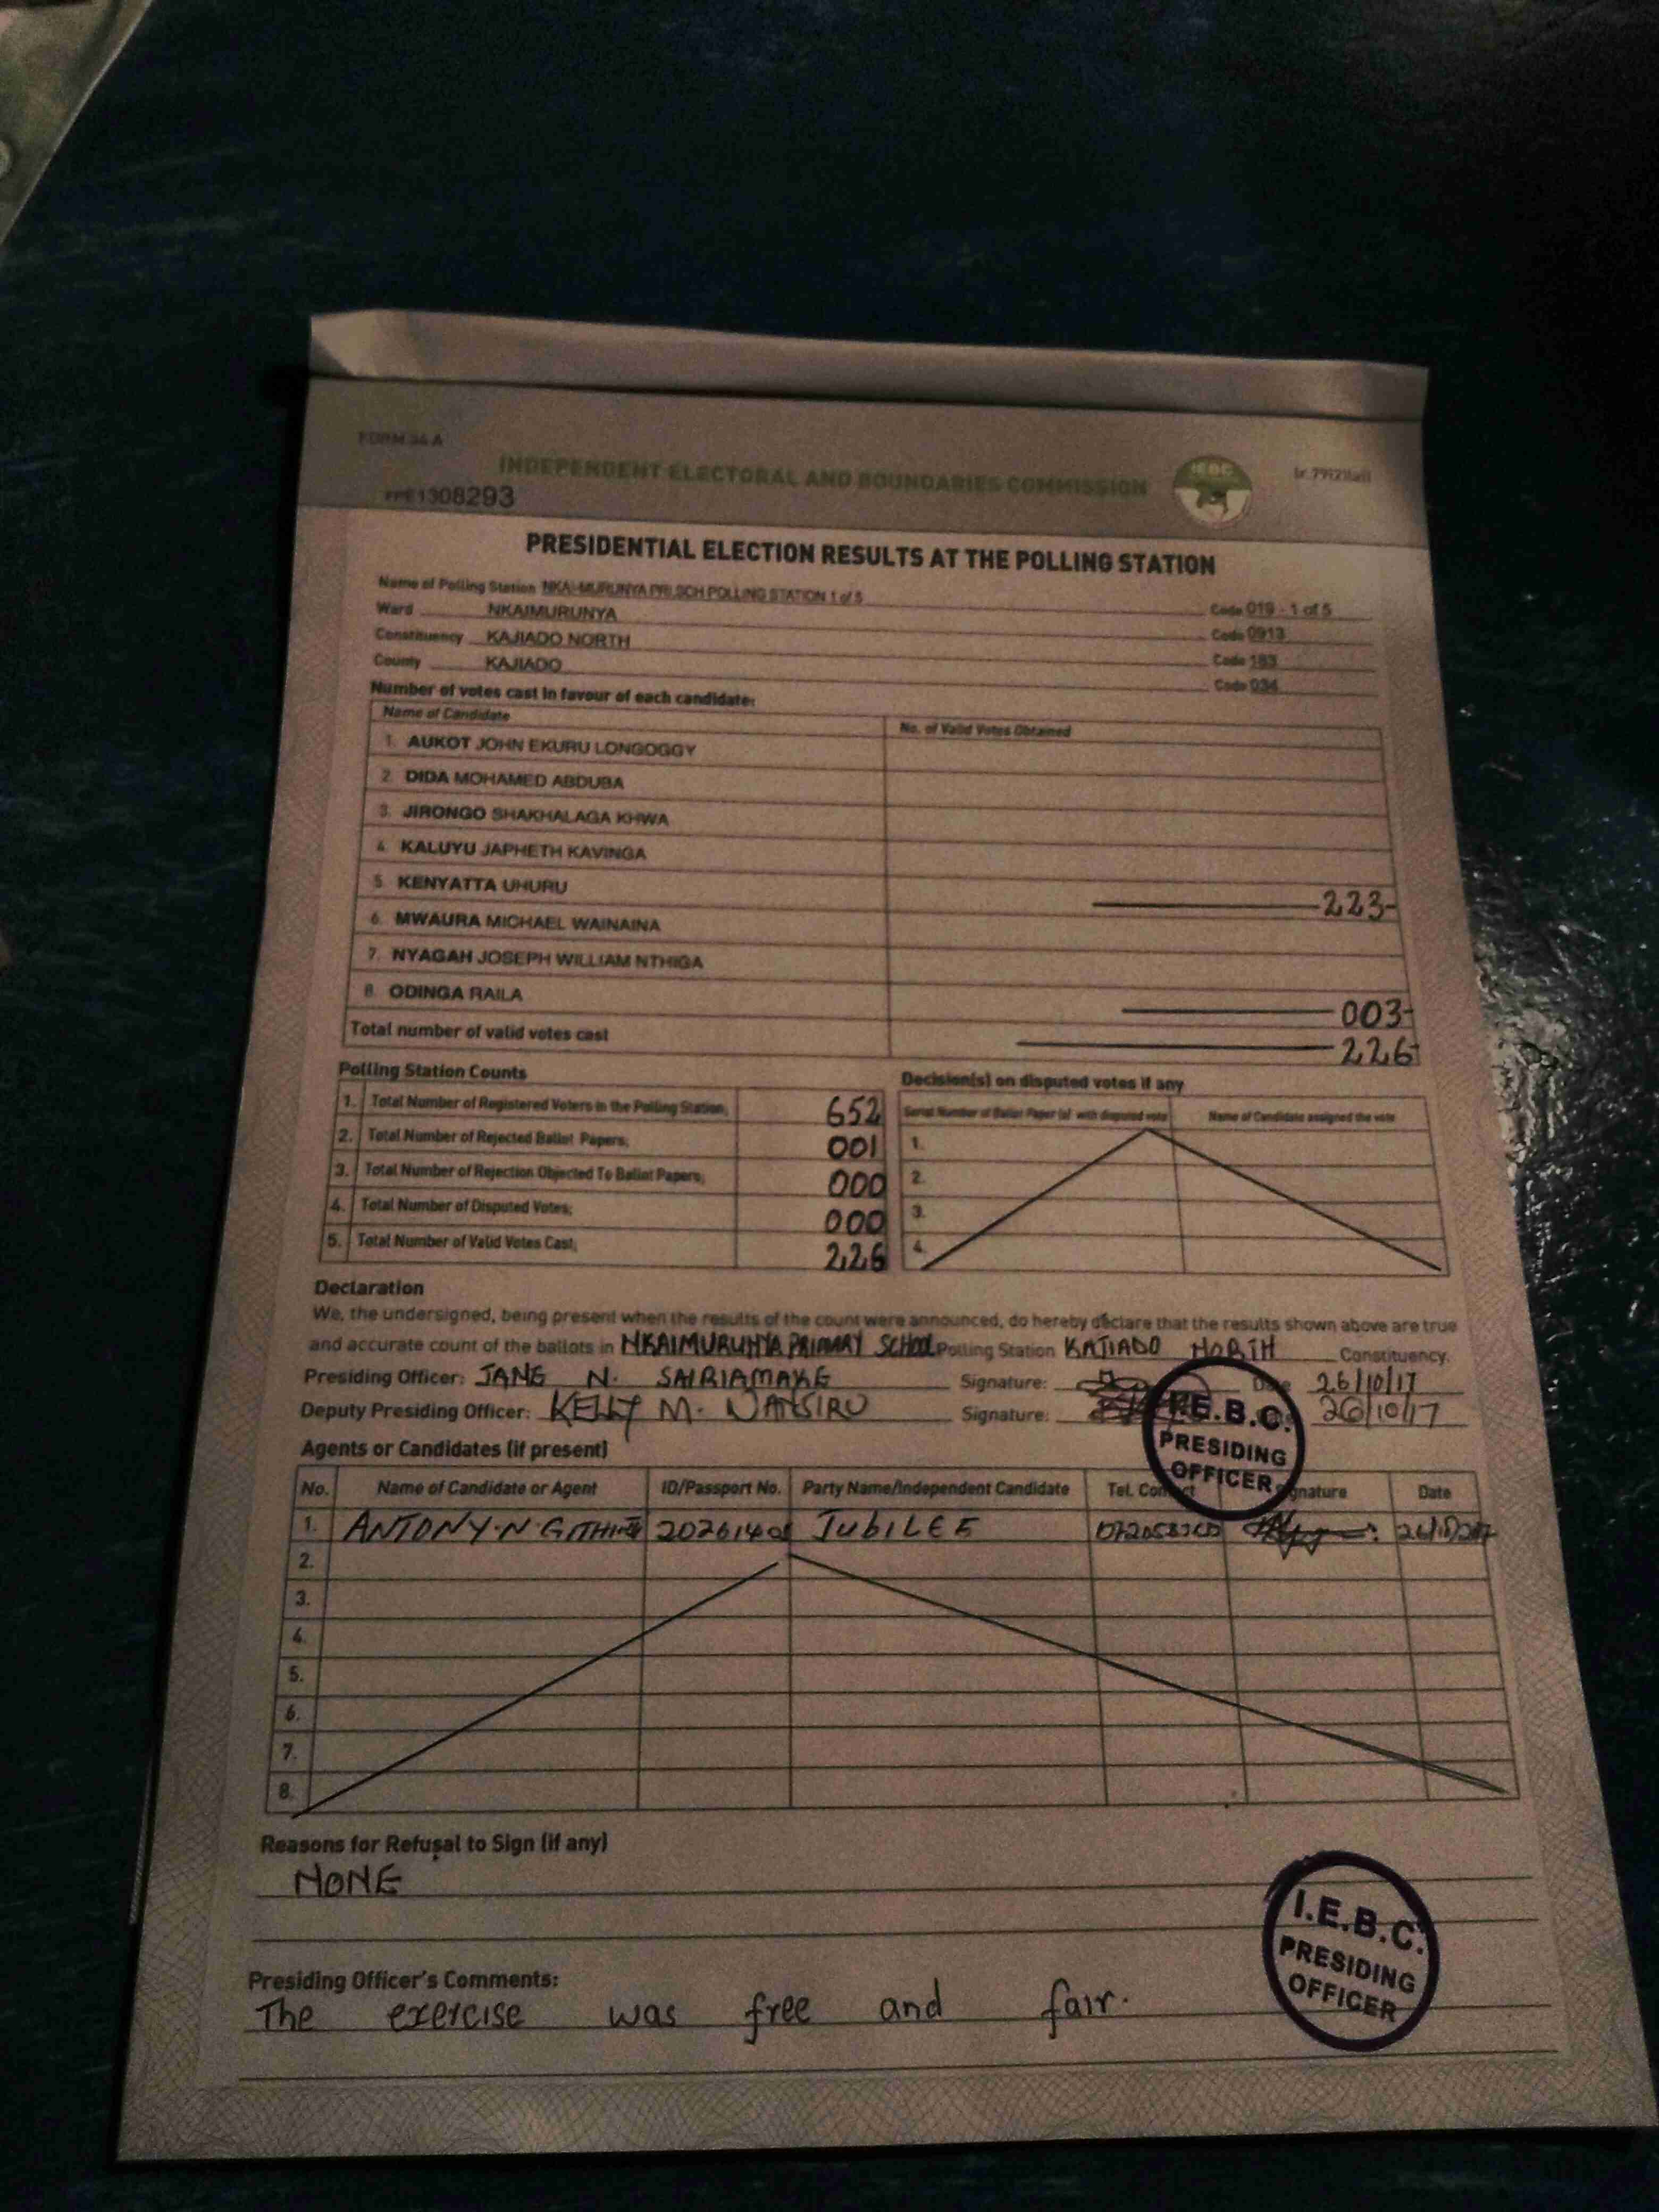 FORM 34 A
INDEPENDENT ELECTORAL AND BOUNDARIES COMMISSION
I.E.B.C
1308293
PRESIDENTIAL ELECTION RESULTS AT THE POLLING STATION
Name of Polling Station NKAI-MURUNYA PRI SCH POLLING STATION 1 of 5 Code 019 - 1 of 5
Ward NKAIMURUNYA Code 0913
Constituency KAJIADO NORTH Code 183
County KAJIADO Code 034
Number of votes cast in favour of each candidate:
Name of Candidate No. of Valid Votes Obtained
1. AUKOT JOHN EKURU LONGOGGY
2. DIDA MOHAMED ABDUBA
3. JIRONGO SHAKHALAGA KHWA
4. KALUYU JAPHETH KAVINGA
5. KENYATTA UHURU 223
6. MWAURA MICHAEL WAINAINA
7. NYAGAH JOSEPH WILLIAM NTHIGA
8. ODINGA RAILA 003
Total number of valid votes cast 226
Polling Station Counts
1. Total Number of Registered Voters in the Polling Station; 652
2. Total Number of Rejected Ballot Papers; 001
3. Total Number of Rejection Objected To Ballot Papers; 000
4. Total Number of Disputed Votes; 000
5. Total Number of Valid Votes Cast; 226
Decision(s) on disputed votes if any
Serial Number of Ballot Paper (s) with disputed vote Name of Candidate assigned the vote
1.
2.
3.
4.
Declaration
We, the undersigned, being present when the results of the count were announced, do hereby declare that the results shown above are true
and accurate count of the ballots in NKAIMURUNYA PRIMARY SCHOOL Polling Station KAJIADO NORTH Constituency.
Presiding Officer: JANE N. SAIRIAMAKE Signature: Date 26/10/17
Deputy Presiding Officer: KELLY M. Signature: 26/10/17
I.E.B.C.
PRESIDING
OFFICER
Agents or Candidates (if present)
No. Name of Candidate or Agent ID/Passport No. Party Name/Independent Candidate Tel. Contact Signature Date
1. ANTONY.N. JUBILEE
2.
3.
4.
5.
6.
7.
8.
Reasons for Refusal to Sign (if any)
NONE
Presiding Officer's Comments:
The exercise was free and fair.
I.E.B.C.
PRESIDING
OFFICER